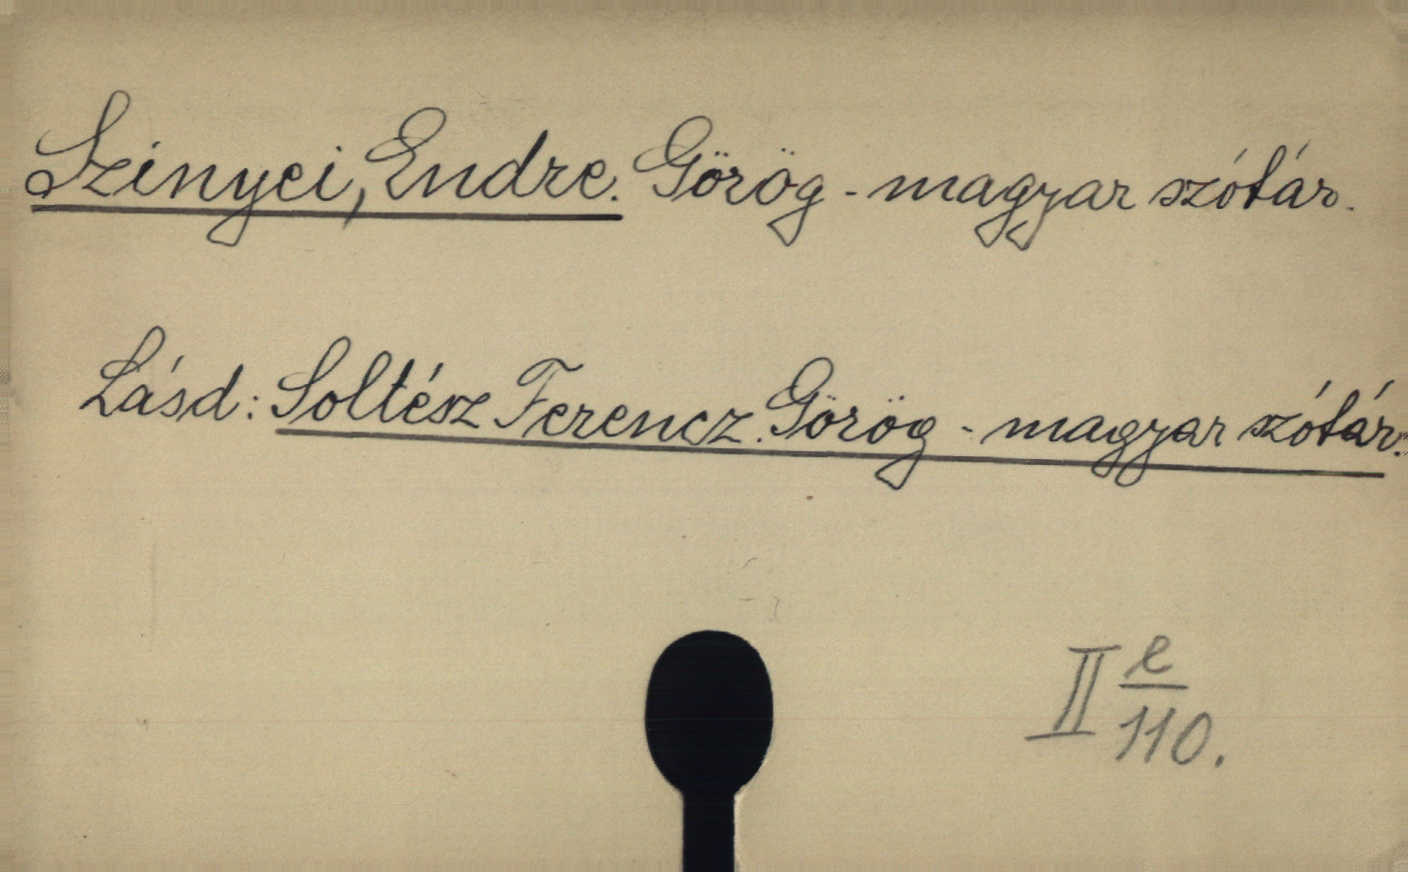 Szinyei, Endre. Görög - magyar szótár.
Lásd: Soltész Ferencz. Görög - magyar szótár.
II e/110.